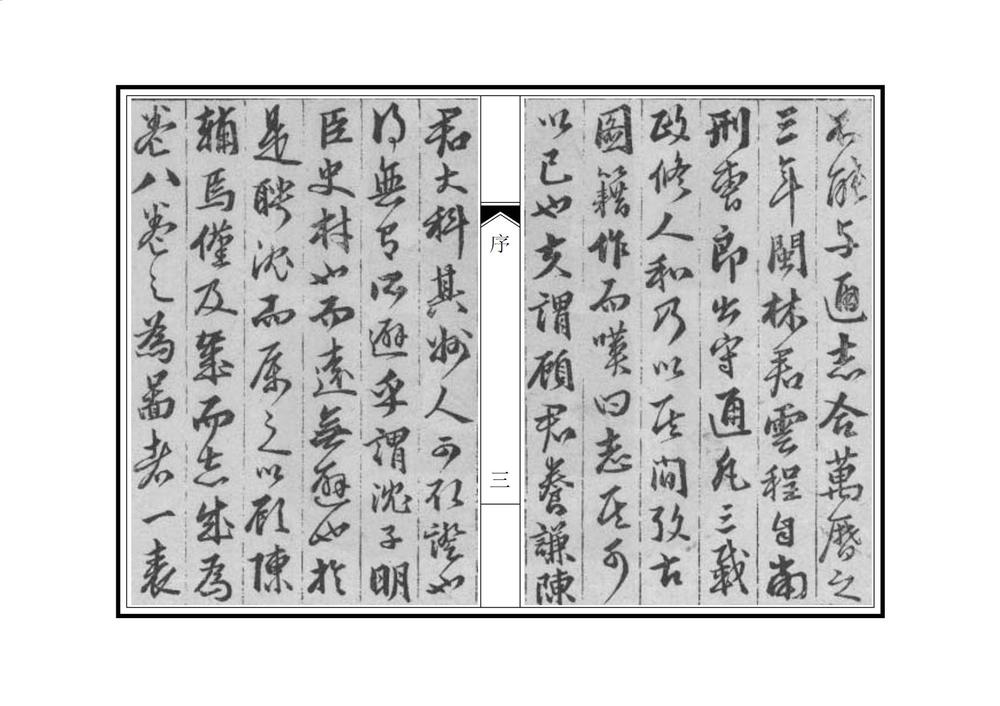 不能与通志合萬曆之
三年閩林君雲程自南
刑曹郎出守通凡三載
政修人和乃以其間攷古
圖籍作而嘆曰志其可
以已也夫謂顧君養謙陳
序
三
君大科其州人可證也
得無有所避乎謂沈子明
臣史材也而遠無避也於
是聘沈而屬之以顧陳
輔焉僅及而志成為
卷八卷之為啚者一表